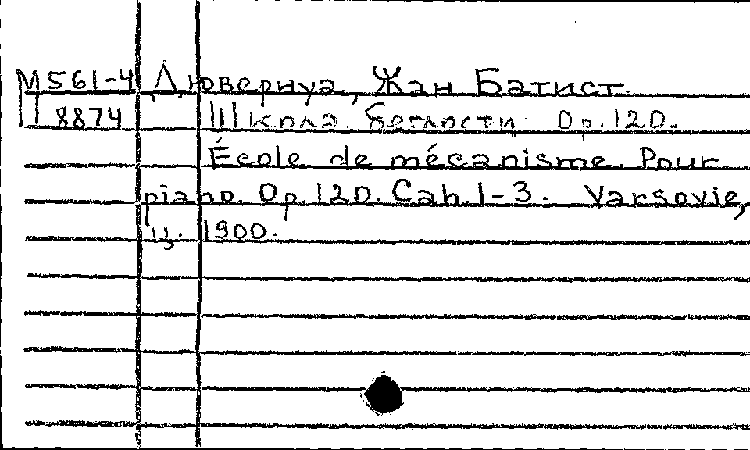 М561-4 Дювернуа, Жан Батист.
8874 Школа беглости. Op. 120.
École de mécanisme. Pour
piano. Op. 120. Cah. 1-3. Varsovie,
ц. 1900.